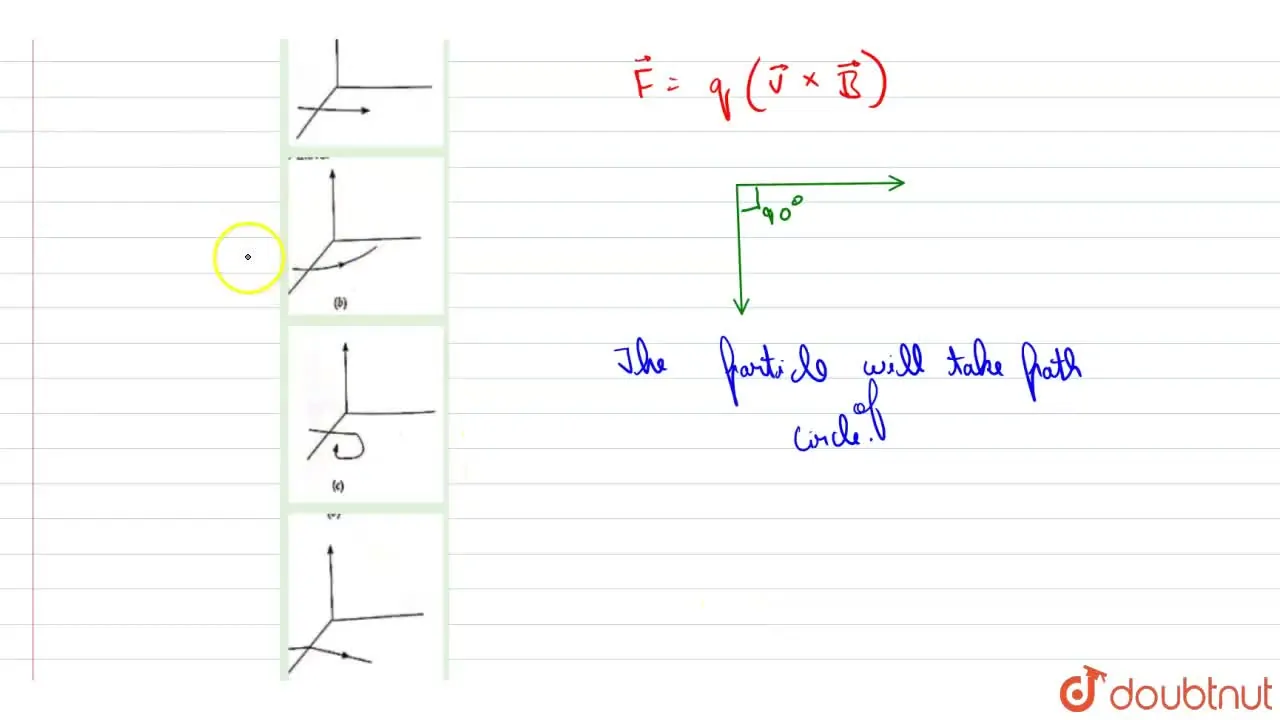 F⃗ = q (v⃗ × B⃗)
90°
(b)
The particle will take path
of
circle.
(c)
doubtnut